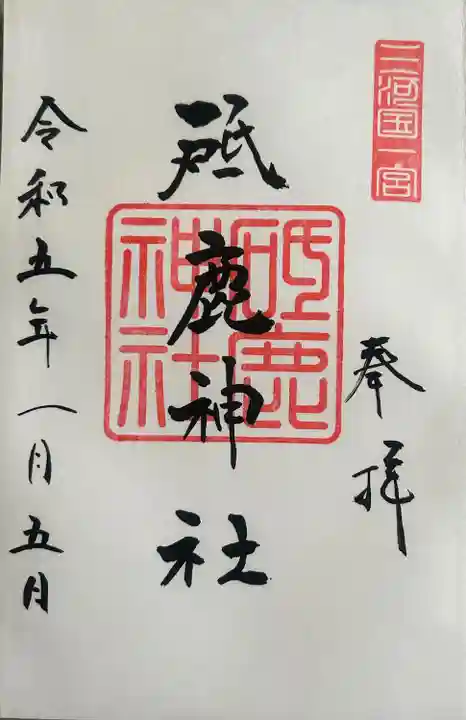 三河国一宮
奉拝
砥鹿神社
砥鹿
神社
令和五年一月五日